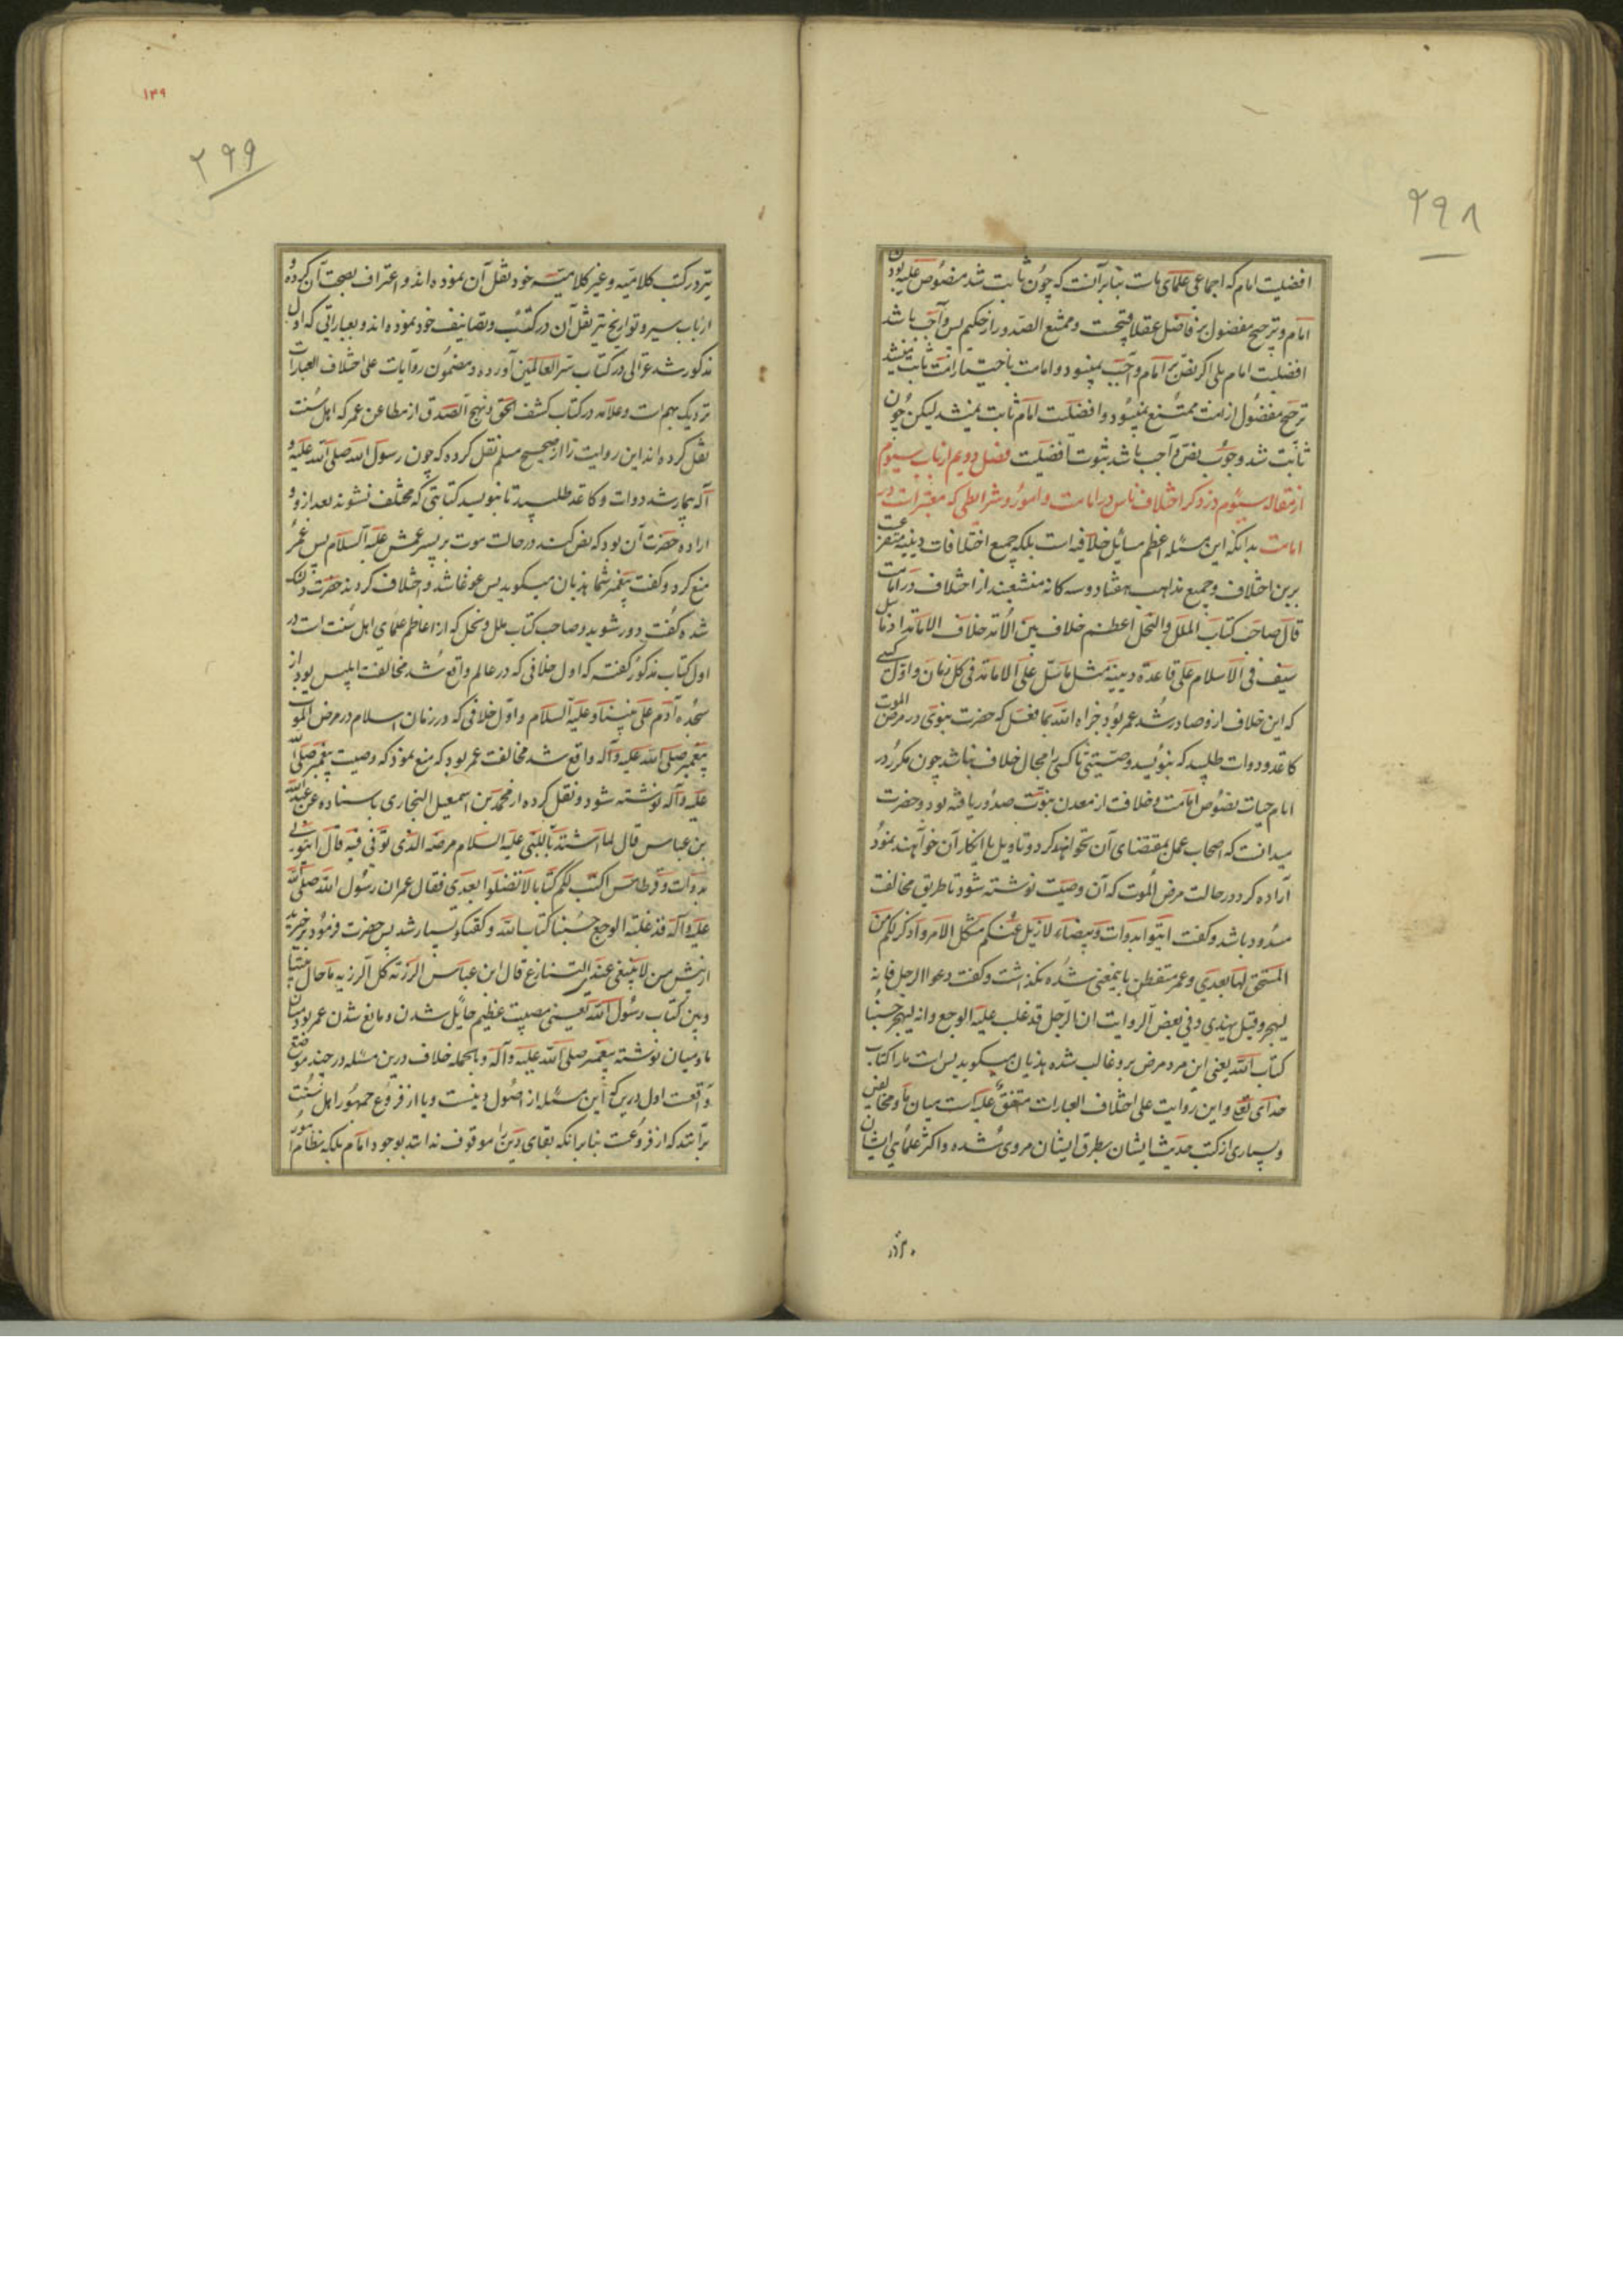 ۲۹۸
افضلیت امام که اجماعی علمای ماست بنابر آنست که چون ثابت شد منصوص علیه بودن
امام و ترجیح مفضول بر فاضل عقلا قبیحست و ممتنع الصدور از حکیم پس واجب باشد
افضلیت امام بلی اگر نص بر امام واجب نمیبود و امامت باختیار امت ثابت میشد
ترجیح مفضول از امت ممتنع نمیبود و افضلیت امام ثابت نمیشد لیکن چون
ثابت شد وجوب نص واجب باشد ثبوت افضلیت فصل دویم از باب سیوم
از مقاله سیوم در ذکر اختلاف ناس در امامت و امور و شرایطی که معتبر است در
امامت بدانکه این مسئله اعظم مسائل خلافیه است بلکه جمیع اختلافات دینیه متفرعست
برین اختلاف و جمیع مذاهب هفتاد و سه کانه منشعبند از اختلاف در امامت
قال صاحب کتاب الملل والنحل اعظم خلاف بین الامة خلاف الامامة اذ ما سل
سیف فی الاسلام علی قاعدة دینیة مثل ما سل علی الامامة فی کل زمان و اول کسی
که این خلاف ازو صادر شد عمر بود جزاه الله بما فعل که حضرت نبوی در مرض الموت
کاغد و دوات طلبید که بنویسد وصیتنی تا کسی را مجال خلاف نباشد چون مکرر در
ایام حیات نصوص امامت و خلافت از معدن نبوت صدور یافته بود و حضرت
میدانست که اصحاب عمل بمقتضای آن نخواهند کرد و تاویل یا انکار آن خواهند نمود
اراده کرد در حالت مرض الموت که آن وصیت نوشته شود تا طریق مخالفت
مسدود باشد و کفت ایتوا بدوات و بیضاء لازیل عنکم مشکل الامر و اذکر لکم من
المستحق لها بعدی و عمر متفطن باینمعنی شده نکذاشت و کفت دعوا الرجل فانه
لیهجر و قیل یهذی و فی بعض الروایت ان الرجل قد غلب علیه الوجع و انه لیهجر حسبنا
کتاب الله یعنی این مرد مرض برو غالب شده هذیان میکوید بس است ما را کتاب
خدای تع و این روایت علی اختلاف العبارات متفق علیه است میان ما و مخالفین
و بسیاری از کتب حدیث ایشان بطرق ایشان مروی شده و اکثر علمای ایشان
۱۴۹
۲۹۹
نیز در کتب کلامیه و غیر کلامیه خود نقل آن نموده اند و اعتراف بصحت آن کرده و
ارباب سیر و تواریخ نیز نقل آن در کتب و تصانیف خود نموده اند و بعباراتی که اول
مذکور شد غزالی در کتاب سر العالمین آورده و مضمون روایات علی اختلاف العبارات
نزدیک بهم است و علامه در کتاب کشف الحق و نهج الصدق از مطاعن عمر که اهل سنت
نقل کرده اند این روایت را از صحیح مسلم نقل کرده که چون رسول الله صلی الله علیه و
آله بیمار شد دوات و کاغد طلبید تا بنویسد کتابتی که مختلف نشوند بعد ازو و
اراده حضرت آن بود که نص کند در حالت موت بر پسر عمش علیه السلام پس عمر
منع کرد و کفت پیغمبر شما هذیان میکوید پس غوغا شد و اختلاف کردند حضرت دلتنک
شده کفت دور شوید و صاحب کتاب ملل و نحل که از اعاظم علمای اهل سنت است در
اول کتاب مذکور کفته که اول خلافی که در عالم واقع شد مخالفت ابلیس بود از
سجده آدم علی نبینا و علیه السلام و اول خلافی که در زمان اسلام در مرض الموت
پیغمبر صلی الله علیه و آله واقع شد مخالفت عمر بود که منع نمود که وصیت پیغمبر صلی الله
علیه و آله نوشته شود و نقل کرده از محمد بن اسمعیل البخاری باسناده عن عبدالله
بن عباس قال لما اشتد بالنبی علیه السلام مرضه الذی توفی فیه قال ایتونی
بدوات و قرطاس اکتب لکم کتابا لا تضلوا بعدی فقال عمر ان رسول الله صلی الله
علیه و آله قد غلبه الوجع حسبنا کتاب الله و کفتکو بسیار شد پس حضرت فرمود برخیزید
از پیش من لا ینبغی عندی التنازع قال ابن عباس الرزیة کل الرزیة ما حال بیننا
و بین کتاب رسول الله یعنی مصیبت عظیم حایل شدن و مانع شدن عمر بود میان
ما و میان نوشته پیغمبر صلی الله علیه و آله و بالجمله خلاف درین مسئله در چند موضع
واقعست اول درین که این مسئله از اصول دینست و یا از فروع جمهور اهل سنت
برآنند که از فروعست بنابر آنکه بقای دین را موقوف ندانند بوجود امام بلکه نظام امور